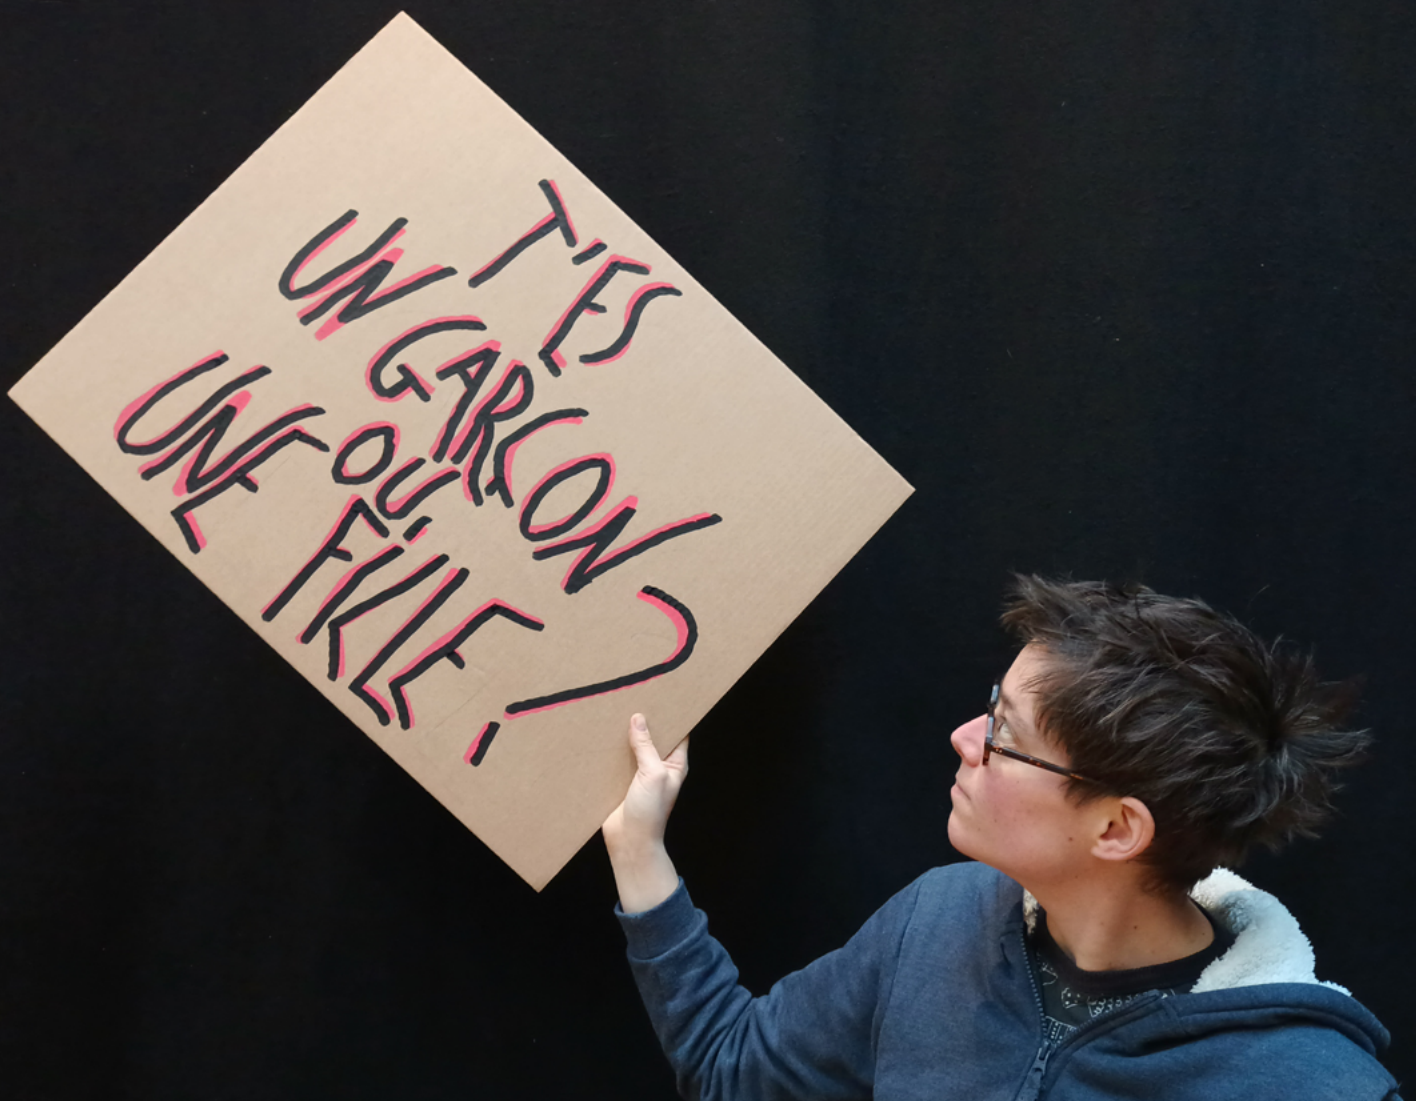 T'ES
UN GARCON
OU
UNE FILLE ?